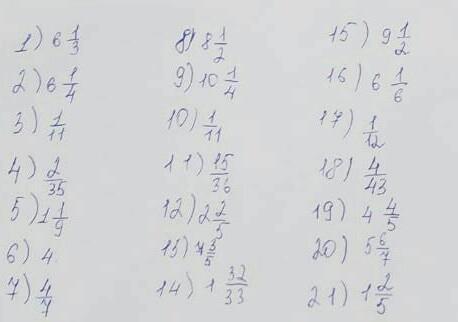 1) 6 1/3
2) 6 1/4
3) 1/11
4) 2/35
5) 1 1/9
6) 4.
7) 4/7
8) 8 1/2
9) 10 1/4
10) 1/11
11) 15/36
12) 2 2/5
13) 7 3/5
14) 1 32/33
15) 9 1/2
16) 6 1/6
17) 1/12
18) 4/43
19) 4 4/5
20) 5 6/7
21) 1 2/5